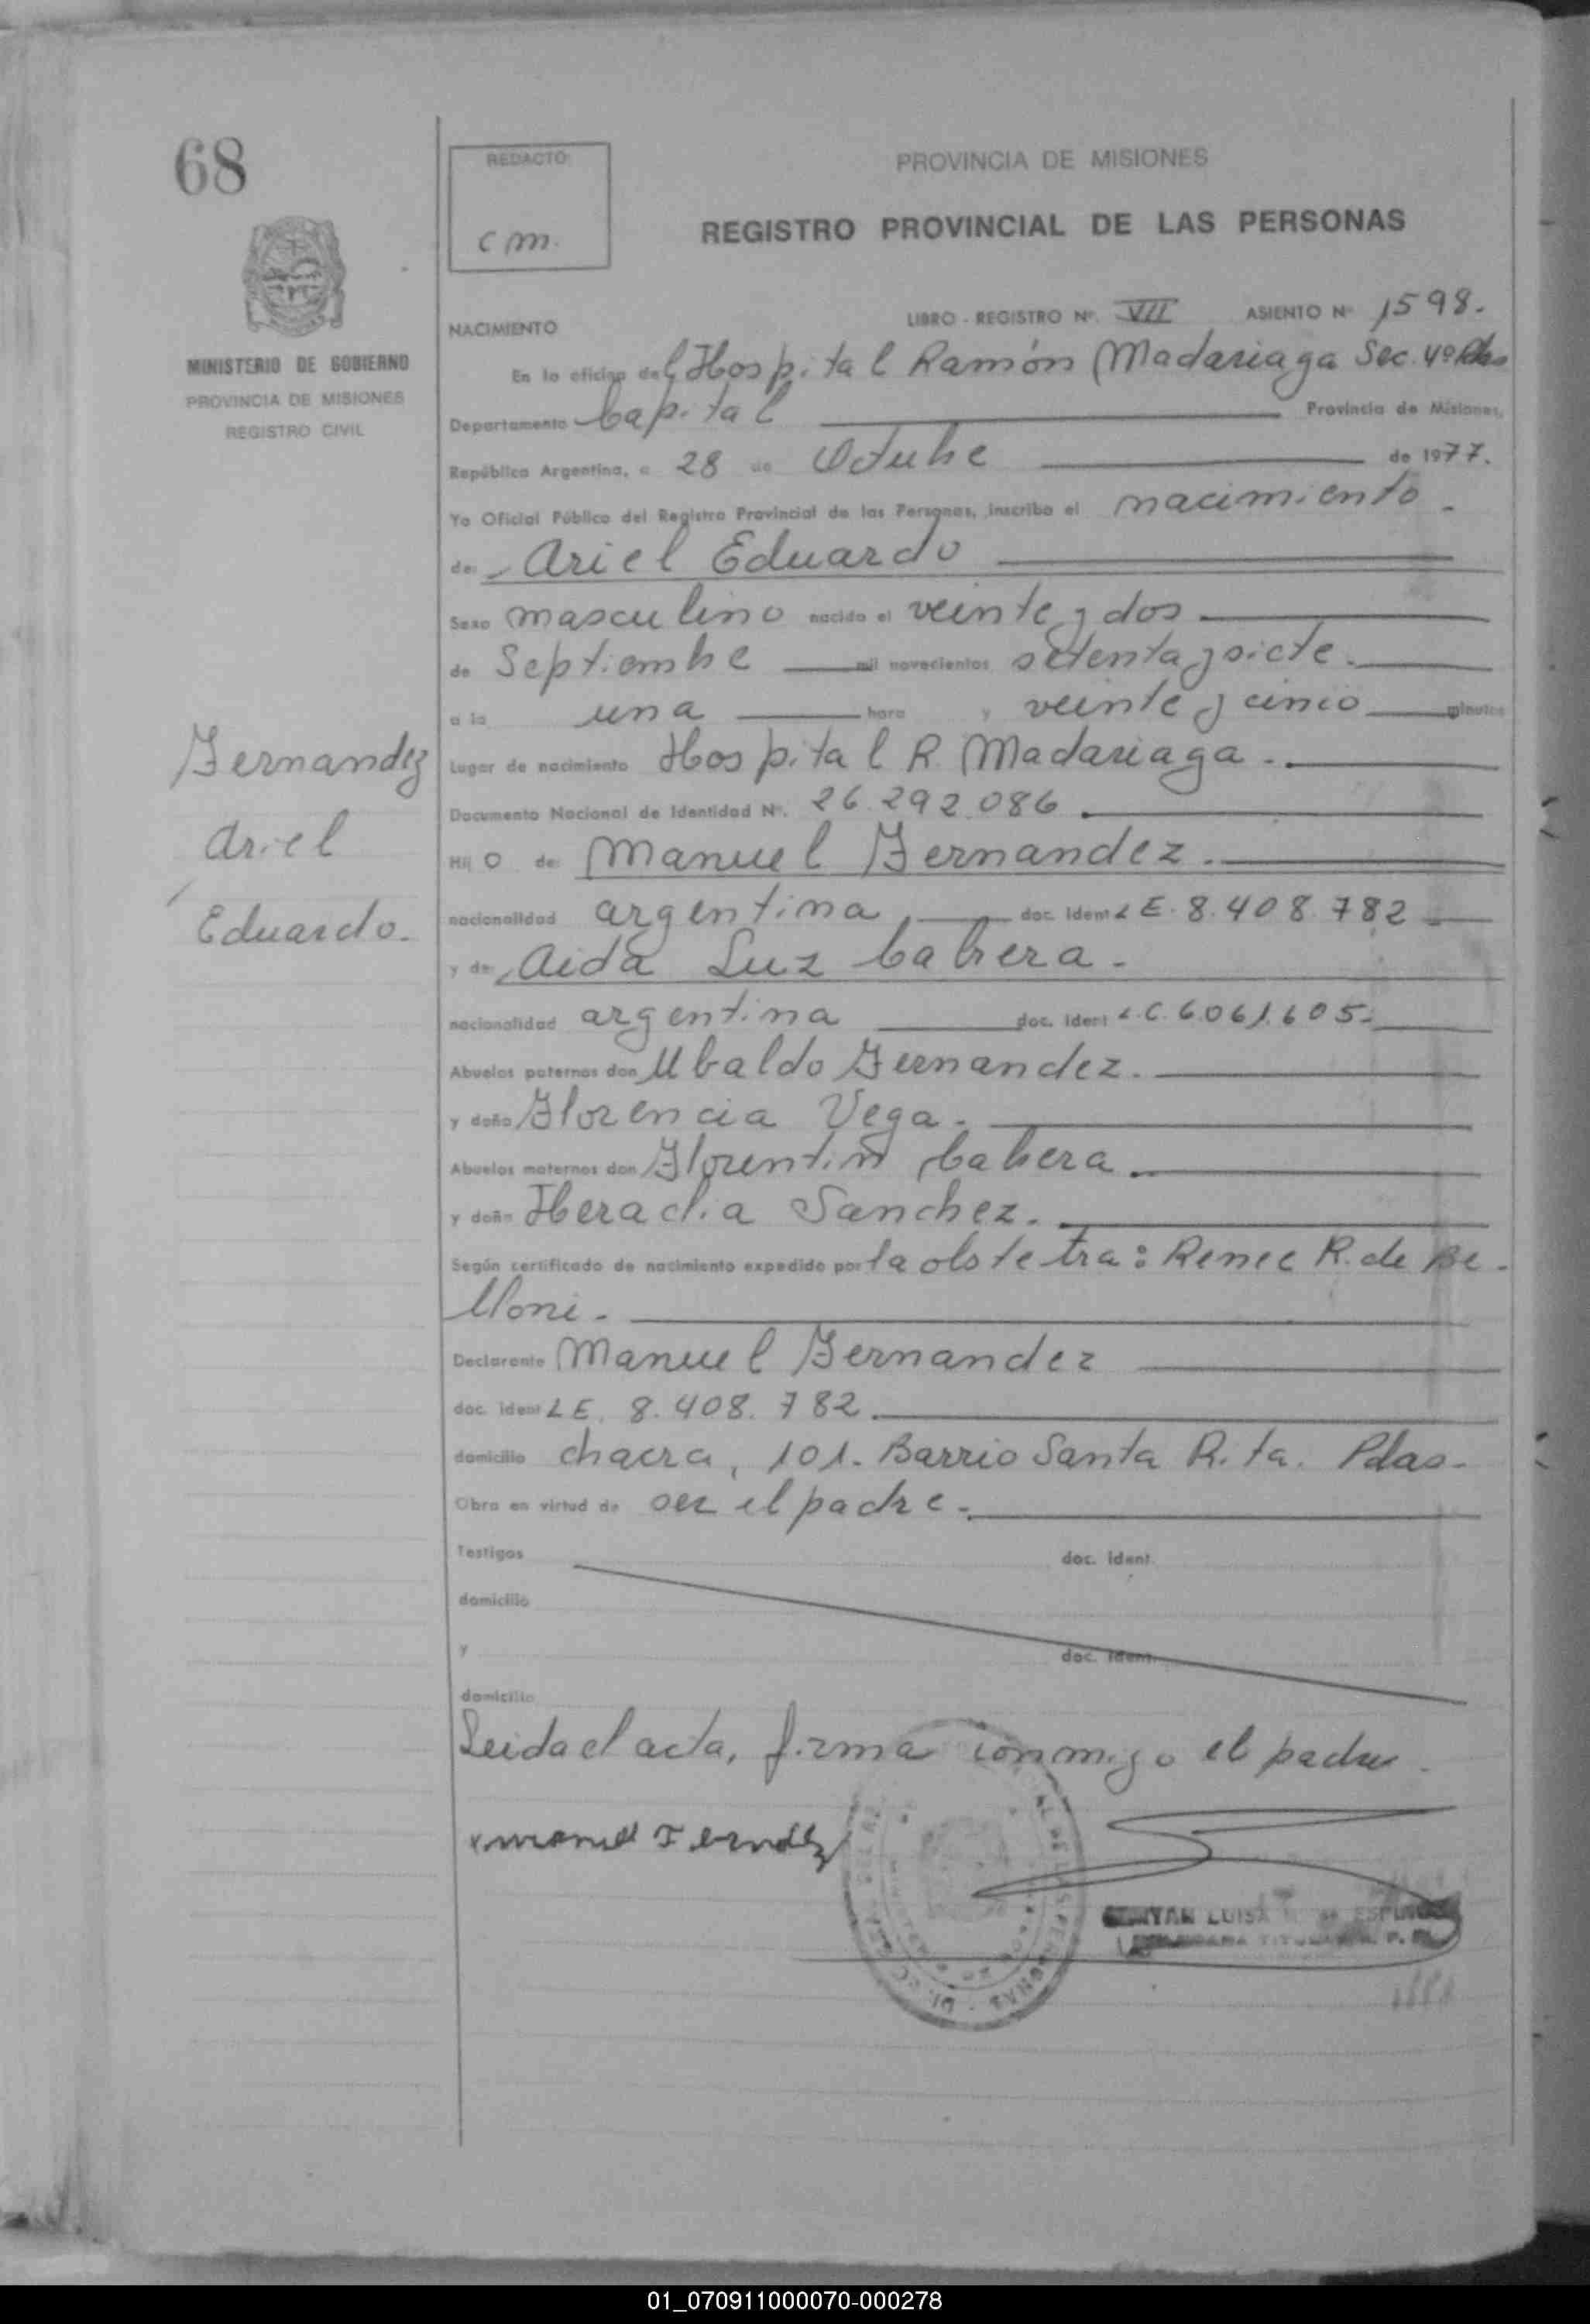 68
REDACTO:
cm.
PROVINCIA DE MISIONES
REGISTRO PROVINCIAL DE LAS PERSONAS
MINISTERIO DE GOBIERNO
PROVINCIA DE MISIONES
REGISTRO CIVIL
NACIMIENTO
LIBRO - REGISTRO Nº. VII ASIENTO Nº 1598.
En la oficina del Hospital Ramón Madariaga Sec. 4º Pdas
Departamento Capital Provincia de Misiones,
República Argentina, a 28 de Octubre de 1977.
Yo Oficial Público del Registro Provincial de las Personas, inscribo el nacimiento.
de: Ariel Eduardo
Sexo masculino nacido el veinte y dos
de Septiembre mil novecientos setenta y siete.
a la una hora y veinte y cinco minutos
Lugar de nacimiento Hospital R. Madariaga.
Documento Nacional de Identidad Nº. 26.292.086.
Hij o de: Manuel Fernandez.
nacionalidad argentina, doc. ident L E. 8.408.782
y de: Aida Luz Cabrera.
nacionalidad argentina doc. ident L.C. 6.061.605.
Abuelos paternos don Ubaldo Fernandez.
y doña Florencia Vega.
Abuelos maternos don Florentin Cabrera.
y doña Heraclia Sanchez.
Según certificado de nacimiento expedido por la obstetra: Renee R. de Be-
lloni.
Declarante Manuel Fernandez
doc. ident L E. 8.408.782.
domicilio chacra, 101. Barrio Santa Rita. Pdas.
Obra en virtud de ser el padre.
Testigos doc. ident.
domicilio
y doc. ident.
domicilio
Leida el acta, firma conmigo el padre.
Manuel Fernandez
LUISA
Fernandez
Ariel
Eduardo.
01_070911000070-000278